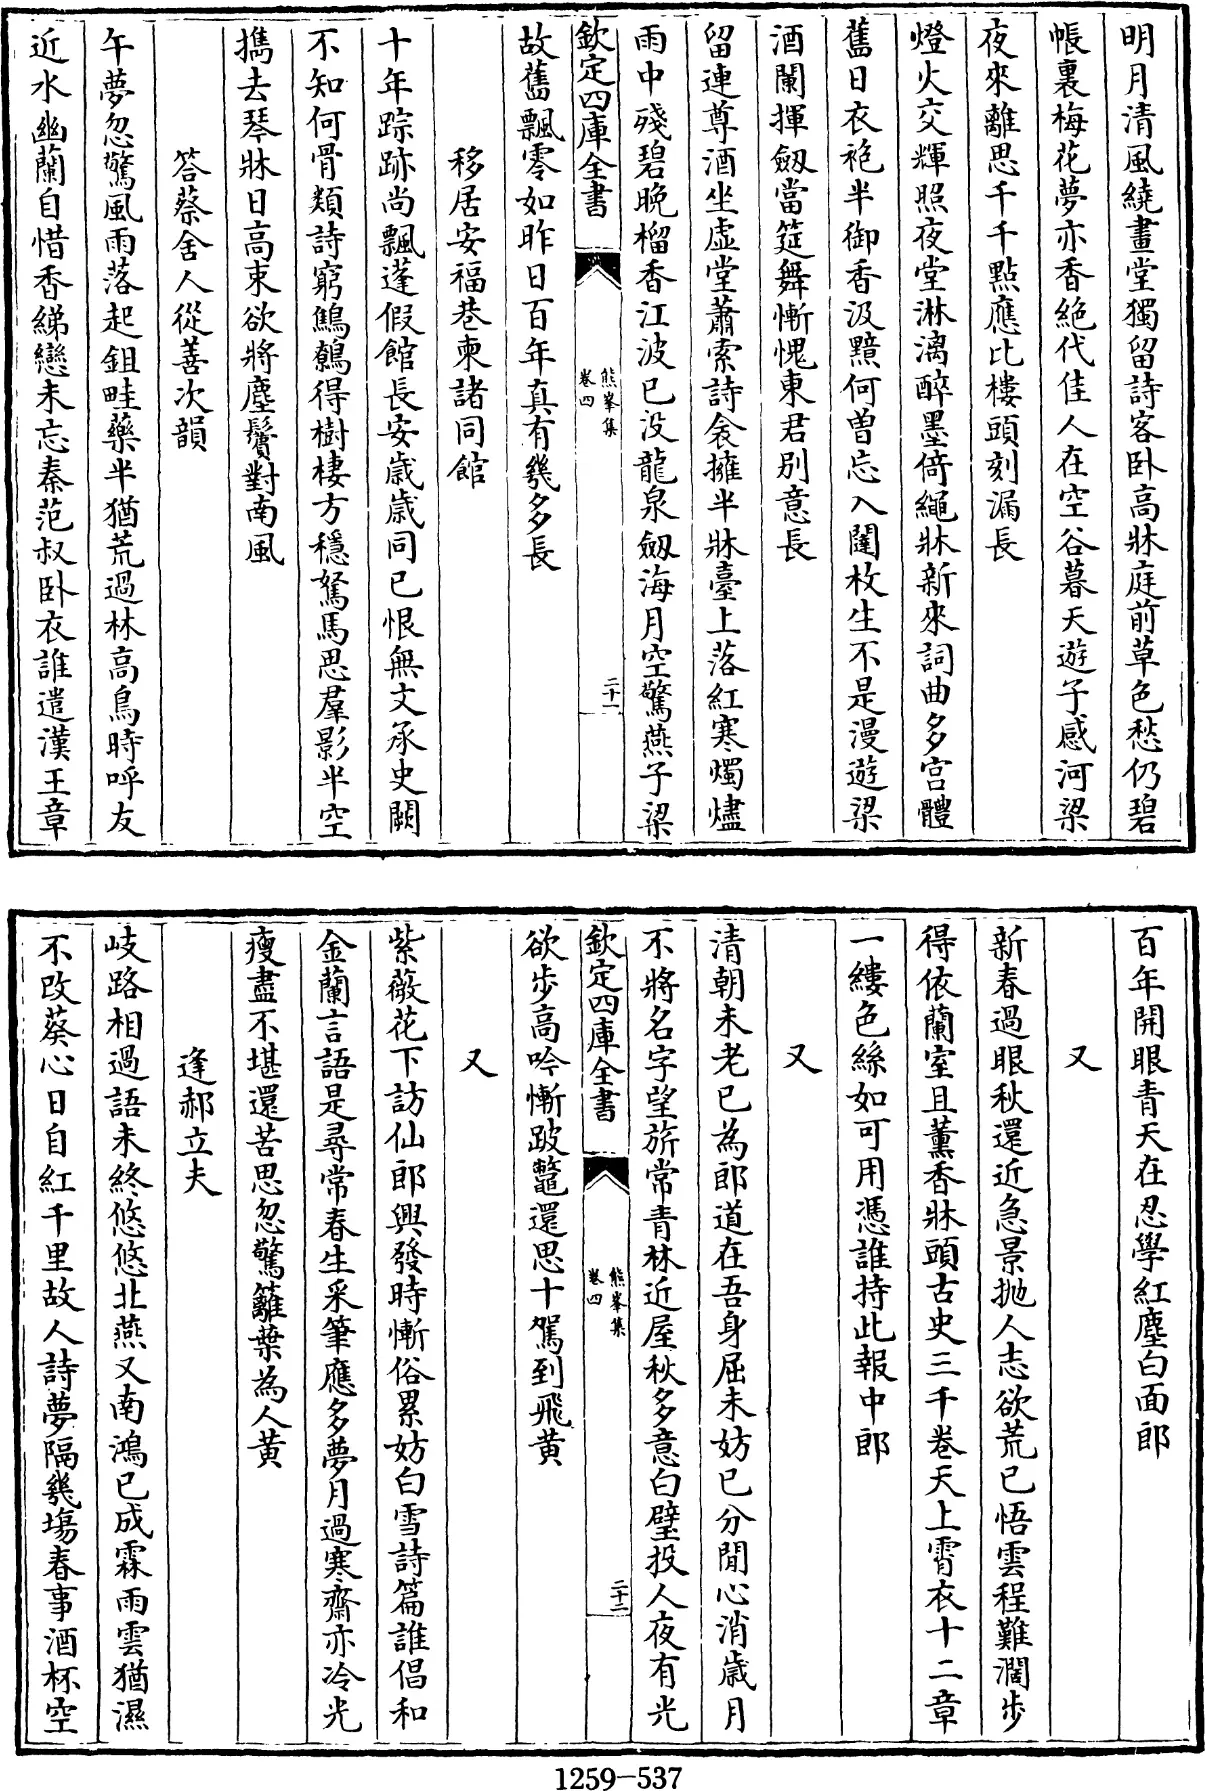 明月清風繞畫堂獨留詩客卧高牀庭前草色愁仍碧
帳裏梅花夢亦香絶代佳人在空谷暮天遊子感河梁
夜來離思千千㸃應比樓頭刻漏長
燈火交輝照夜堂淋漓醉墨倚繩牀新來詞曲多宫體
舊日衣袍半御香汲黯何曽忘入闥枚生不是漫遊梁
酒闌揮劔當筵舞慚愧東君别意長
留連尊酒坐虚堂蕭索詩衾擁半牀臺上落紅寒燭燼
雨中殘碧晚榴香江波已没龍泉劔海月空驚燕子梁
欽定四庫全書
熊峯集
卷四
二十一
故舊飄零如昨日百年真有幾多長
移居安福巷柬諸同館
十年踪跡尚飄蓬假館長安歲歲同已恨無文承史闕
不知何骨類詩窮鷦鷯得樹棲方穩駑馬思羣影半空
擕去琴牀日高束欲將塵鬢對南風
答蔡舍人從善次韻
午夢忽驚風雨落起鉏畦藥半猶荒過林髙鳥時呼友
近水幽蘭自惜香綈戀未忘秦范叔卧衣誰遣漢王章
百年開眼青天在忍學紅塵白面郎
又
新春過眼秋還近急景抛人志欲荒已悟雲程難濶步
得依蘭室且薰香牀頭古史三千卷天上霄衣十二章
一縷色絲如可用憑誰持此報中郎
又
清朝未老已為郎道在吾身屈未妨已分閒心消歲月
不將名字望旂常青林近屋秋多意白璧投人夜有光
欽定四庫全書
熊峯集
卷四
二十二
欲步高吟慚跛鼈還思十駕到飛黄
又
紫薇花下訪仙郎興發時慚俗累妨白雪詩篇誰倡和
金蘭言語是尋常春生采筆應多夢月過寒齋亦冷光
瘦盡不堪還苦思忽驚籬葉為人黄
逢郝立夫
岐路相過語未終悠悠北燕又南鴻已成霖雨雲猶濕
不改葵心日自紅千里故人詩夢隔幾塲春事酒杯空
1259-537